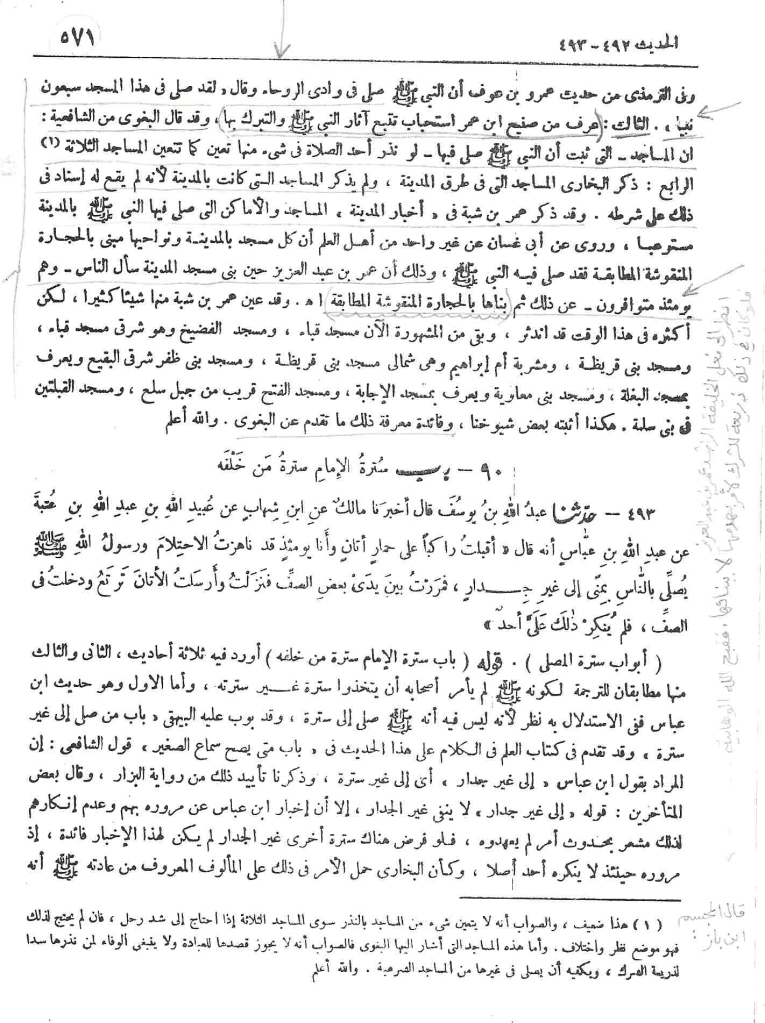 الحديث ٤٩٢ - ٤٩٣
٥٧١
وفى الترمذى من حديث عمرو بن عوف أن النبي ﷺ صلى فى وادى الروحاء وقال « لقد صلى فى هذا المسجد سبعون
نبيا » . الثالث : عرف من صنيع ابن عمر استحباب تتبع آثار النبي ﷺ والتبرك بها ، وقد قال البغوى من الشافعية :
ان المساجد ــ التى ثبت أن النبي ﷺ صلى فيها ــ لو نذر أحد الصلاة فى شىء منها تعين كما تتعين المساجد الثلاثة (١)
الرابع : ذكر البخارى المساجد التى فى طرق المدينة ، ولم يذكر المساجد التى كانت بالمدينة لأنه لم يقع له إسناد فى
ذلك على شرطه . وقد ذكر عمر بن شبة فى « أخبار المدينة » المساجد والأماكن التى صلى فيها النبي ﷺ بالمدينة
مستوعبا ، وروى عن أبى غسان عن غير واحد من أهل العلم أن كل مسجد بالمدينة ونواحيها مبنى بالحجارة
المنقوشة المطابقة فقد صلى فيه النبي ﷺ ، وذلك أن عمر بن عبد العزيز حين بنى مسجد المدينة سأل الناس ــ وهم
يومئذ متوافرون ــ عن ذلك ثم بناها بالحجارة المنقوشة المطابقة ا ه . وقد عين عمر بن شبة منها شيئا كثيرا ، لكن
أكثره فى هذا الوقت قد اندثر ، وبقى من المشهورة الآن مسجد قباء ، ومسجد الفضيخ وهو شرقى مسجد قباء ،
ومسجد بنى قريظة ، ومشربة أم إبراهيم وهى شمالى مسجد بنى قريظة ، ومسجد بنى ظفر شرقى البقيع ويعرف
بمسجد البغلة ، ومسجد بنى معاوية ويعرف بمسجد الإجابة ، ومسجد الفتح قريب من جبل سلع ، ومسجد القبلتين
فى بنى سلمة . هكذا أثبته بعض شيوخنا ، وفائدة معرفة ذلك ما تقدم عن البغوى . والله أعلم
٩٠ - باب سُترةُ الإمامِ سترةُ مَن خَلْفَه
٤٩٣ - حدّثنا عبدُ اللهِ بنُ يوسُفَ قال أخبرَنا مالكٌ عنِ ابنِ شِهابٍ عن عُبيدِ اللهِ بنِ عبدِ اللهِ بنِ عُتبةَ
عن عبدِ اللهِ بنِ عبّاسٍ أنه قال « أقبلتُ راكباً على حمارِ أتانٍ وأنا يومئذٍ قد ناهزتُ الاحتِلامَ ورسولُ اللهِ ﷺ
يُصلِّى بالنّاسِ بمِنًى إلى غيرِ جِدارٍ ، فمَرَرْتُ بينَ يدَىْ بعضِ الصفِّ فنزَلْتُ وأرسلتُ الأتانَ تَرتَعُ ودخلتُ فى
الصفِّ ، فلم يُنكِرْ ذٰلكَ علَىَّ أحدٌ »
( أبواب سترة المصلى ) . قوله ( باب سترة الإمام سترة من خلفه ) أورد فيه ثلاثة أحاديث ، الثانى والثالث
منها مطابقان للترجمة لكونه ﷺ لم يأمر أصحابه أن يتخذوا سترة غير سترته ، وأما الاول وهو حديث ابن
عباس ففى الاستدلال به نظر لأنه ليس فيه أنه ﷺ صلى إلى سترة ، وقد بوب عليه البيهقى « باب من صلى إلى غير
سترة » وقد تقدم فى كتاب العلم فى الكلام على هذا الحديث فى « باب متى يصح سماع الصغير » قول الشافعى : إن
المراد بقول ابن عباس « إلى غير جدار » أى إلى غير سترة ، وذكرنا تأييد ذلك من رواية البزار ، وقال بعض
المتأخرين : قوله « إلى غير جدار » لا ينفى غير الجدار ، إلا أن إخبار ابن عباس عن مروره بهم وعدم إنكارهم
لذلك مشعر بحدوث أمر لم يعهدوه ، فلو فرض هناك سترة أخرى غير الجدار لم يكن لهذا الإخبار فائدة ، إذ
مروره حينئذ لا ينكره أحد أصلا ، وكأن البخارى حمل الأمر فى ذلك على المألوف المعروف من عادته ﷺ أنه
( ١ ) هذا ضعيف ، والصواب أنه لا يتعين شىء من المساجد بالنذر سوى المساجد الثلاثة إذا احتاج إلى شد رحل ، فان لم يحتج لذلك
فهو موضع نظر واختلاف . وأما هذه المساجد التى أشار اليها البغوى فالصواب أنه لا يجوز قصدها للعبادة ولا ينبغى الوفاء لمن نذرها سدا
لذريعة الشرك ، ويكفيه أن يصلى فى غيرها من المساجد الشرعية . والله أعلم
قال المجسم
ابن باز :
انظر إلى فعل الخليفة الراشد عمر بن عبد العزيز
فلو كان في ذلك ذريعة للشرك لأمر بهدمها لا ببنائها ، فقبح الله الوهابية